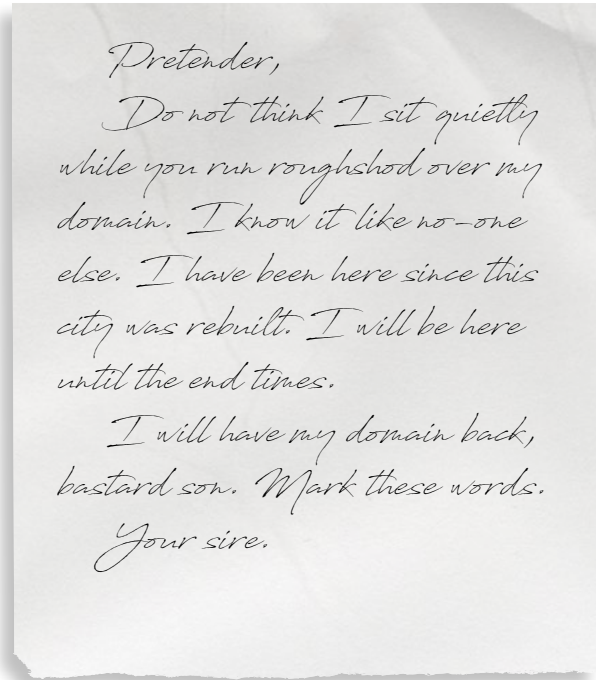 Pretender,
Do not think I sit quietly
while you run roughshod over my
domain. I know it like no-one
else. I have been here since this
city was rebuilt. I will be here
until the end times.
I will have my domain back,
bastard son. Mark these words.
Your sire.